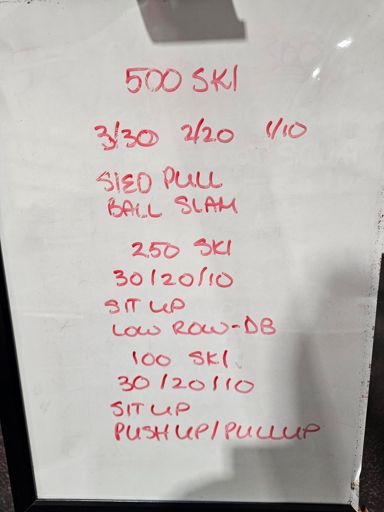 500 SKI
3/30 2/20 1/10
SLED PULL
BALL SLAM
250 SKI
30/20/10
SIT UP
LOW ROW-DB
100 SKI
30/20/10
SIT UP
PUSHUP/PULLUP